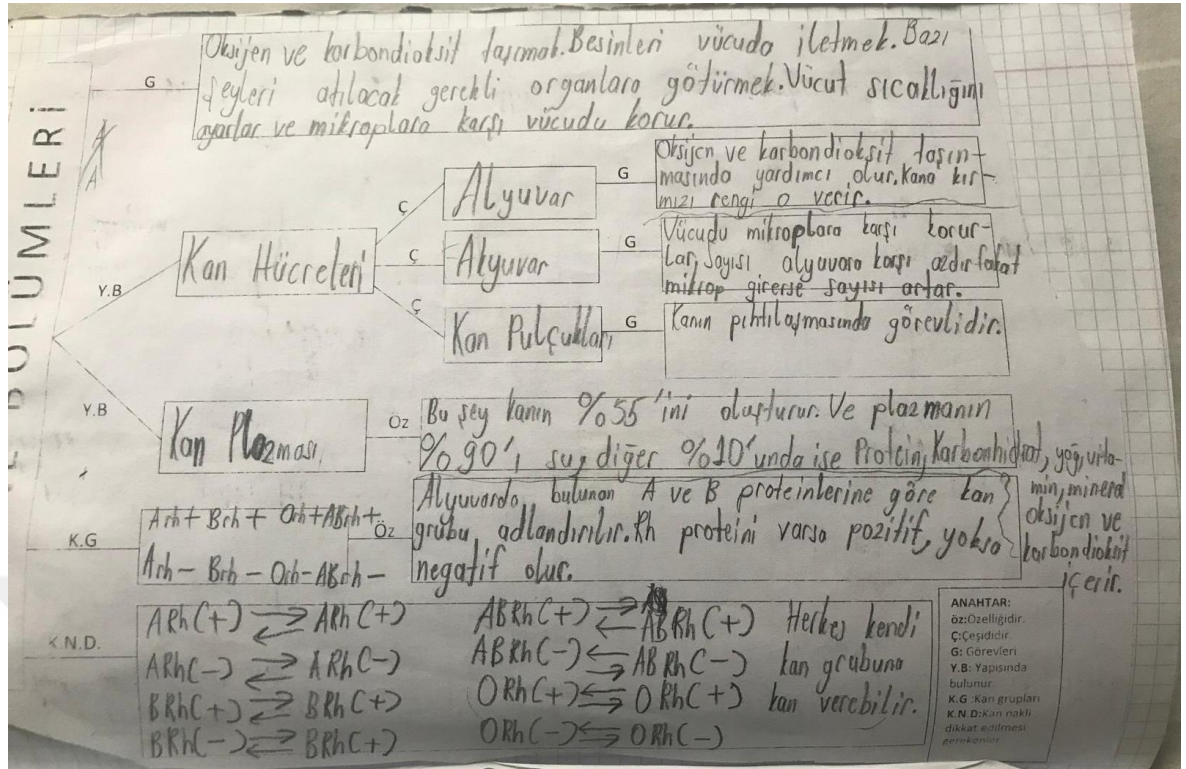 BÖLÜMLERİ
G
Oksijen ve karbondioksit taşımak. Besinleri vücuda iletmek. Bazı
şeyleri atılacak gerekli organlara götürmek. Vücut sıcaklığını
ayarlar ve mikroplara karşı vücudu korur.
Y.B
Kan Hücreleri
Ç
Alyuvar
G
Oksijen ve karbondioksit taşın-
masında yardımcı olur. Kana kır-
mızı rengi o verir.
Ç
Akyuvar
G
Vücudu mikroplara karşı korur-
lar, sayısı alyuvara karşı azdır fakat
mikrop girerse sayısı artar.
Ç
Kan Pulçukları
G
Kanın pıhtılaşmasında görevlidir.
Y.B
Kan Plazması
Öz
Bu şey kanın %55'ini oluşturur. Ve plazmanın
%90'ı su, diğer %10'unda ise Protein, Karbonhidrat, yağ, vita-
min, mineral
oksijen ve
karbondioksit
içerir.
K.G
Arh+ Brh+ Orh+ ABrh+
Arh- Brh- Orh- ABrh-
Öz
Alyuvarda bulunan A ve B proteinlerine göre kan
grubu adlandırılır. Rh proteini varsa pozitif, yoksa
negatif olur.
K.N.D.
ARh(+) ⇄ ARh(+)
ARh(-) ⇄ ARh(-)
BRh(+) ⇄ BRh(+)
BRh(-) ⇄ BRh(+)
ABRh(+) ⇄ ABRh(+)
ABRh(-) ⇆ ABRh(-)
ORh(+) ⇆ ORh(+)
ORh(-) ⇆ ORh(-)
Herkes kendi
kan grubuna
kan verebilir.
ANAHTAR:
öz:Özelliğidir.
Ç:Çeşididir.
G: Görevleri
Y.B: Yapısında
bulunur.
K.G :Kan grupları
K.N.D:Kan nakli
dikkat edilmesi
gerekenler